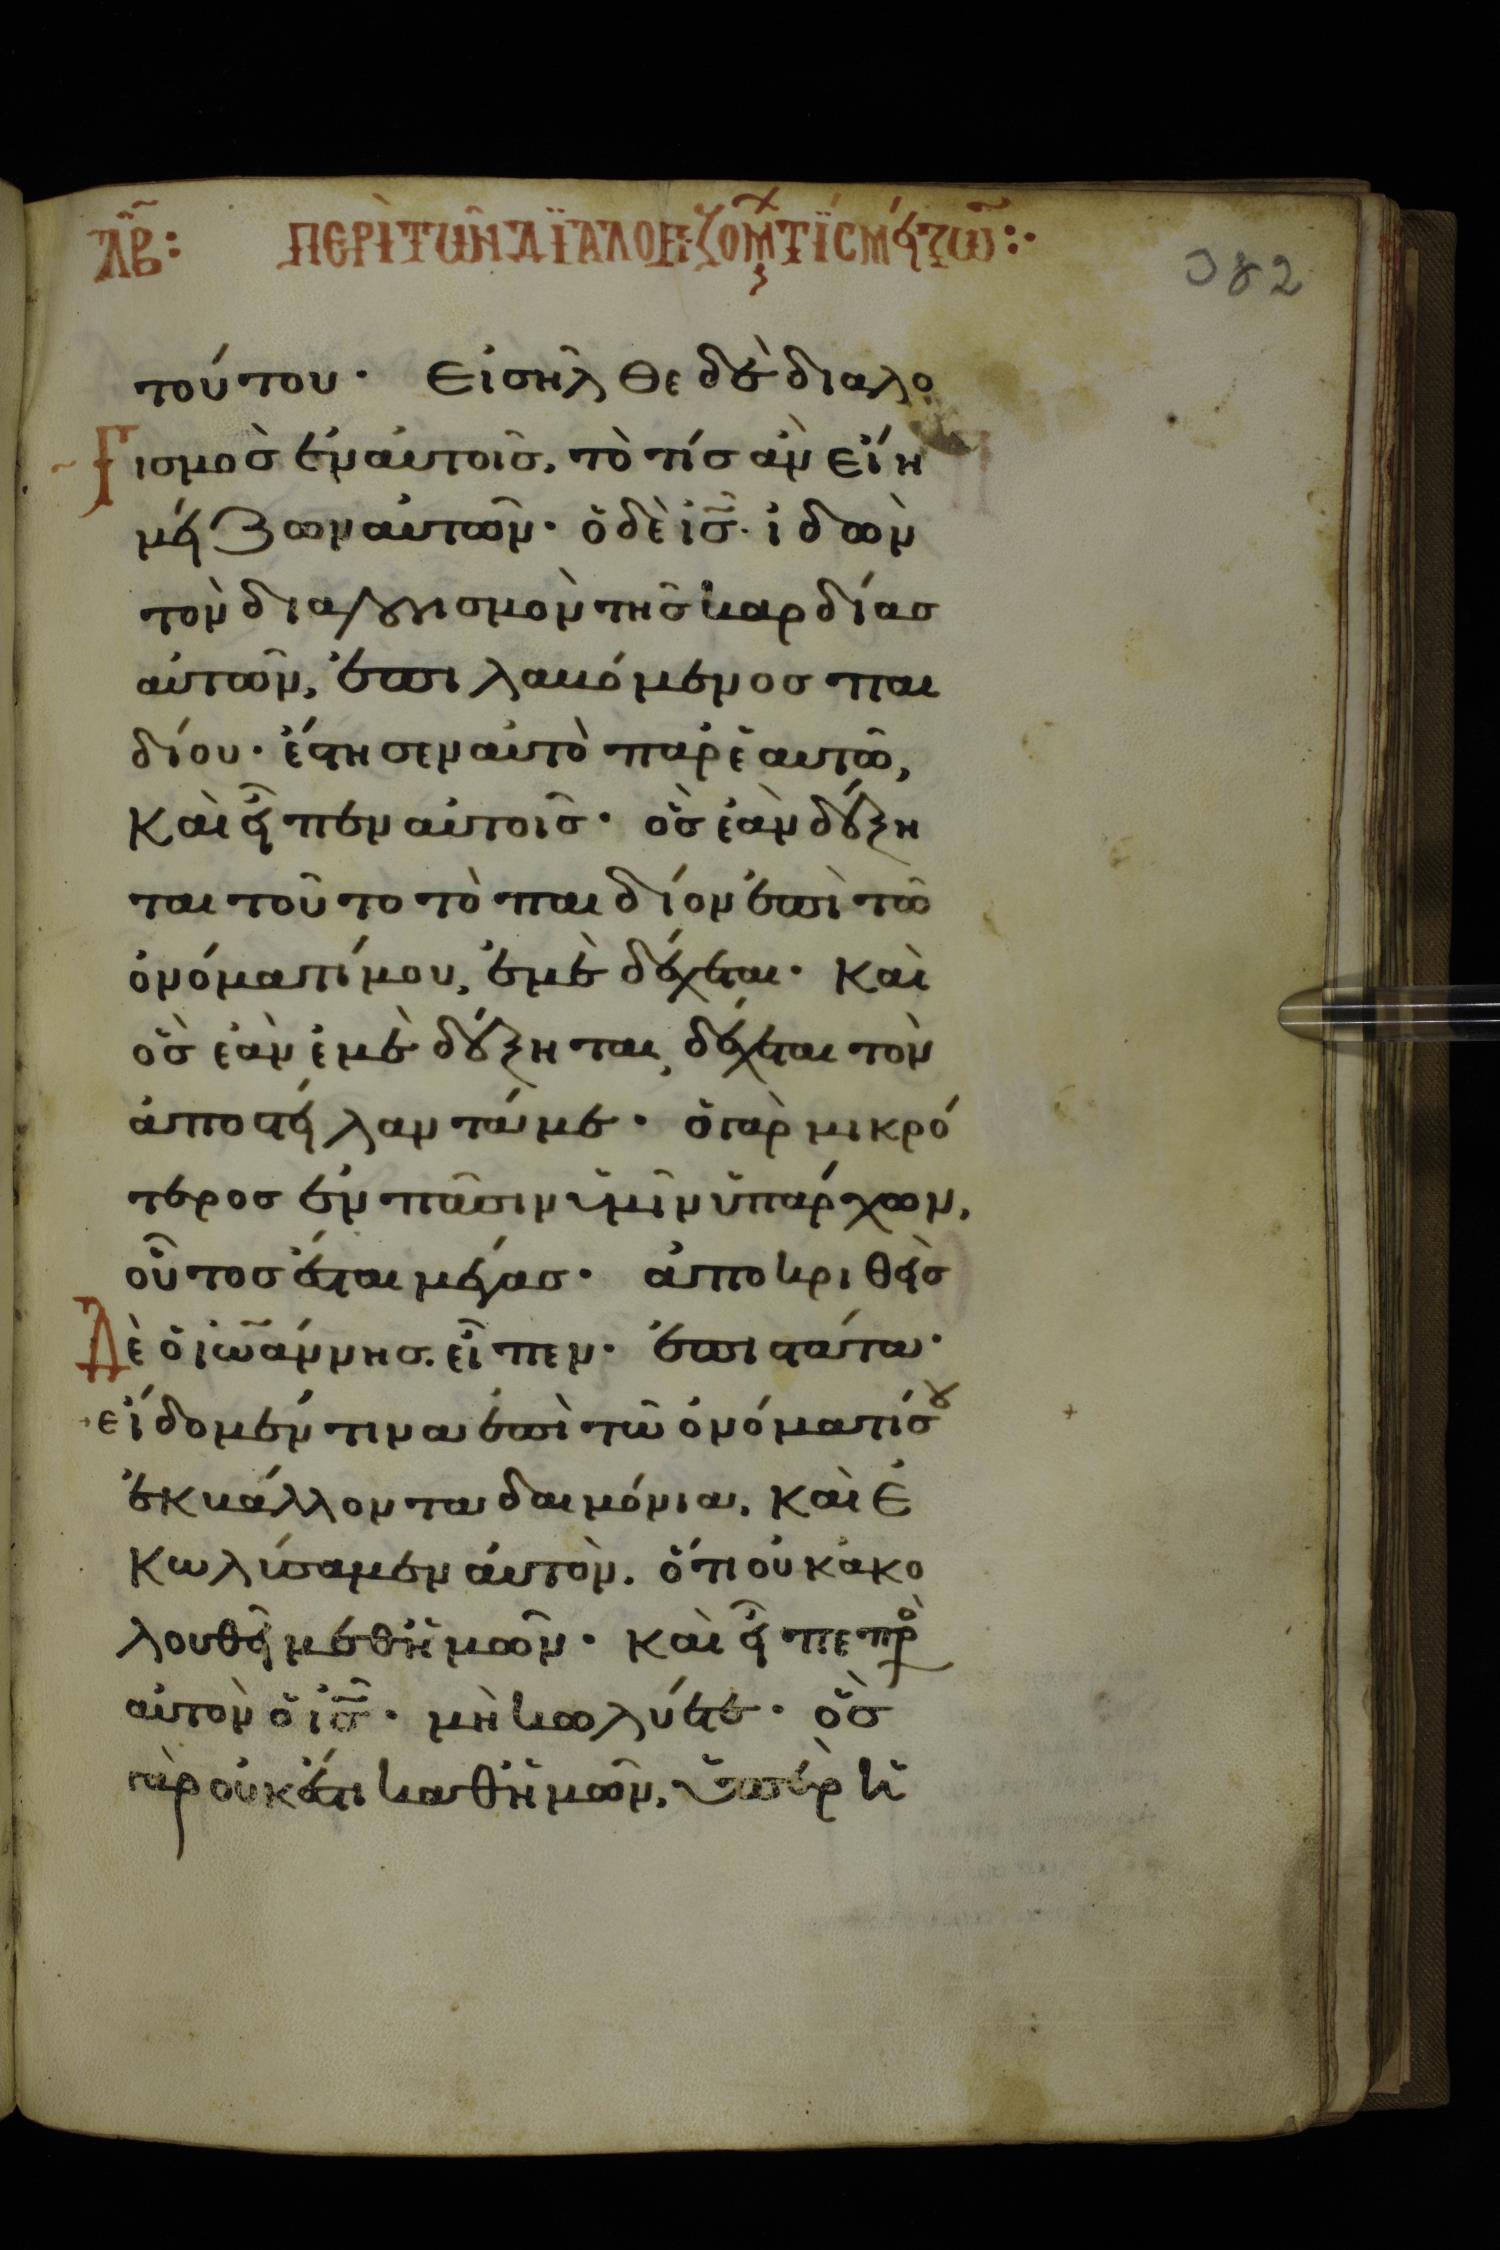 λβ: περὶ τῶν διαλογιζομ τίς μείζω:·
τούτου· Εἰσῆλθε δὲ διαλο
Γισμὸσ ἐν αὐτοῖσ, τὸ τίσ ἂν εἴη
μείζων αὐτῶν· ὁ δὲ ι̅σ̅· ἰδὼν
τὸν διαλογισμὸν τῆσ καρδίασ
αὐτῶν, ἐπιλαβόμενοσ παι
δίου· ἔστησεν αὐτὸ παρ ἑαυτῶ,
Καὶ εἶπεν αὐτοῖσ· ὃσ ἐὰν δέξη
ται τοῦτο τὸ παιδίον ἐπὶ τῶ
ὀνόματί μου, ἐμὲ δέχεται· Καὶ
ὃσ ἐὰν ἐμὲ δέξηται, δέχεται τὸν
ἀποστείλαντά με· ὁ γὰρ μικρό
τεροσ ἐν πᾶσιν ὑμῖν ὑπάρχων,
οὗτοσ ἔσται μέγασ· ἀποκριθεὶσ
Δὲ ὁ ἰωάννησ. εἶπεν· ἐπιστάτα·
εἴδομέν τινα ἐπὶ τῶ ὀνόματί σου
ἐκβάλλοντα δαιμόνια, Καὶ ἐ
Κωλύσαμεν αὐτὸν. ὅτι οὐκ ἀκο
λουθεῖ μεθ ἡμῶν· Καὶ εἶπε πρὸ
αὐτὸν ὁ ι̅σ̅· μὴ κωλύετε· ὃσ
γὰρ οὐκ ἔστι καθ ἡμῶν, ὑπὲρ ἡ